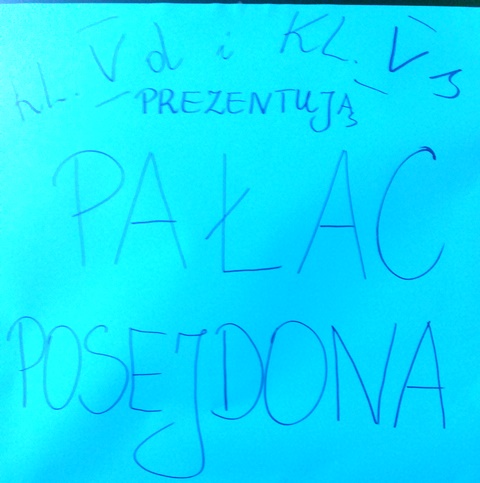 KL. V d i KL. V
PREZENTUJĄ
PAŁAC
POSEJDONA